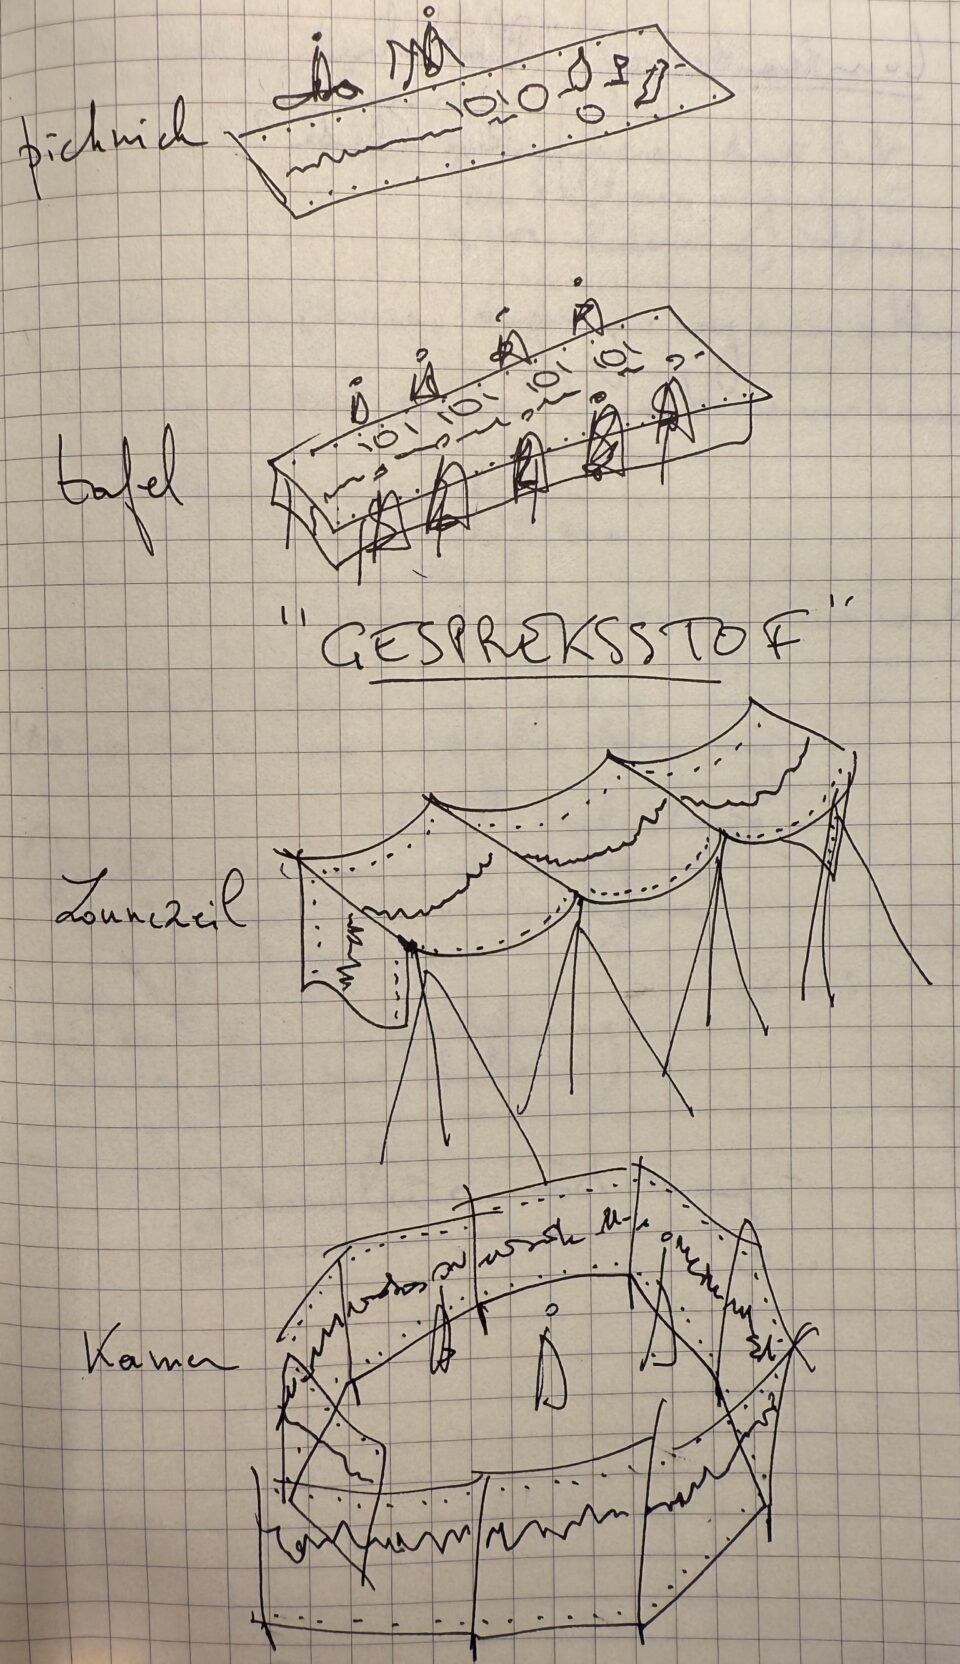 picknick
tafel
"GESPREKSSTOF"
Zonnezeil
Kamer